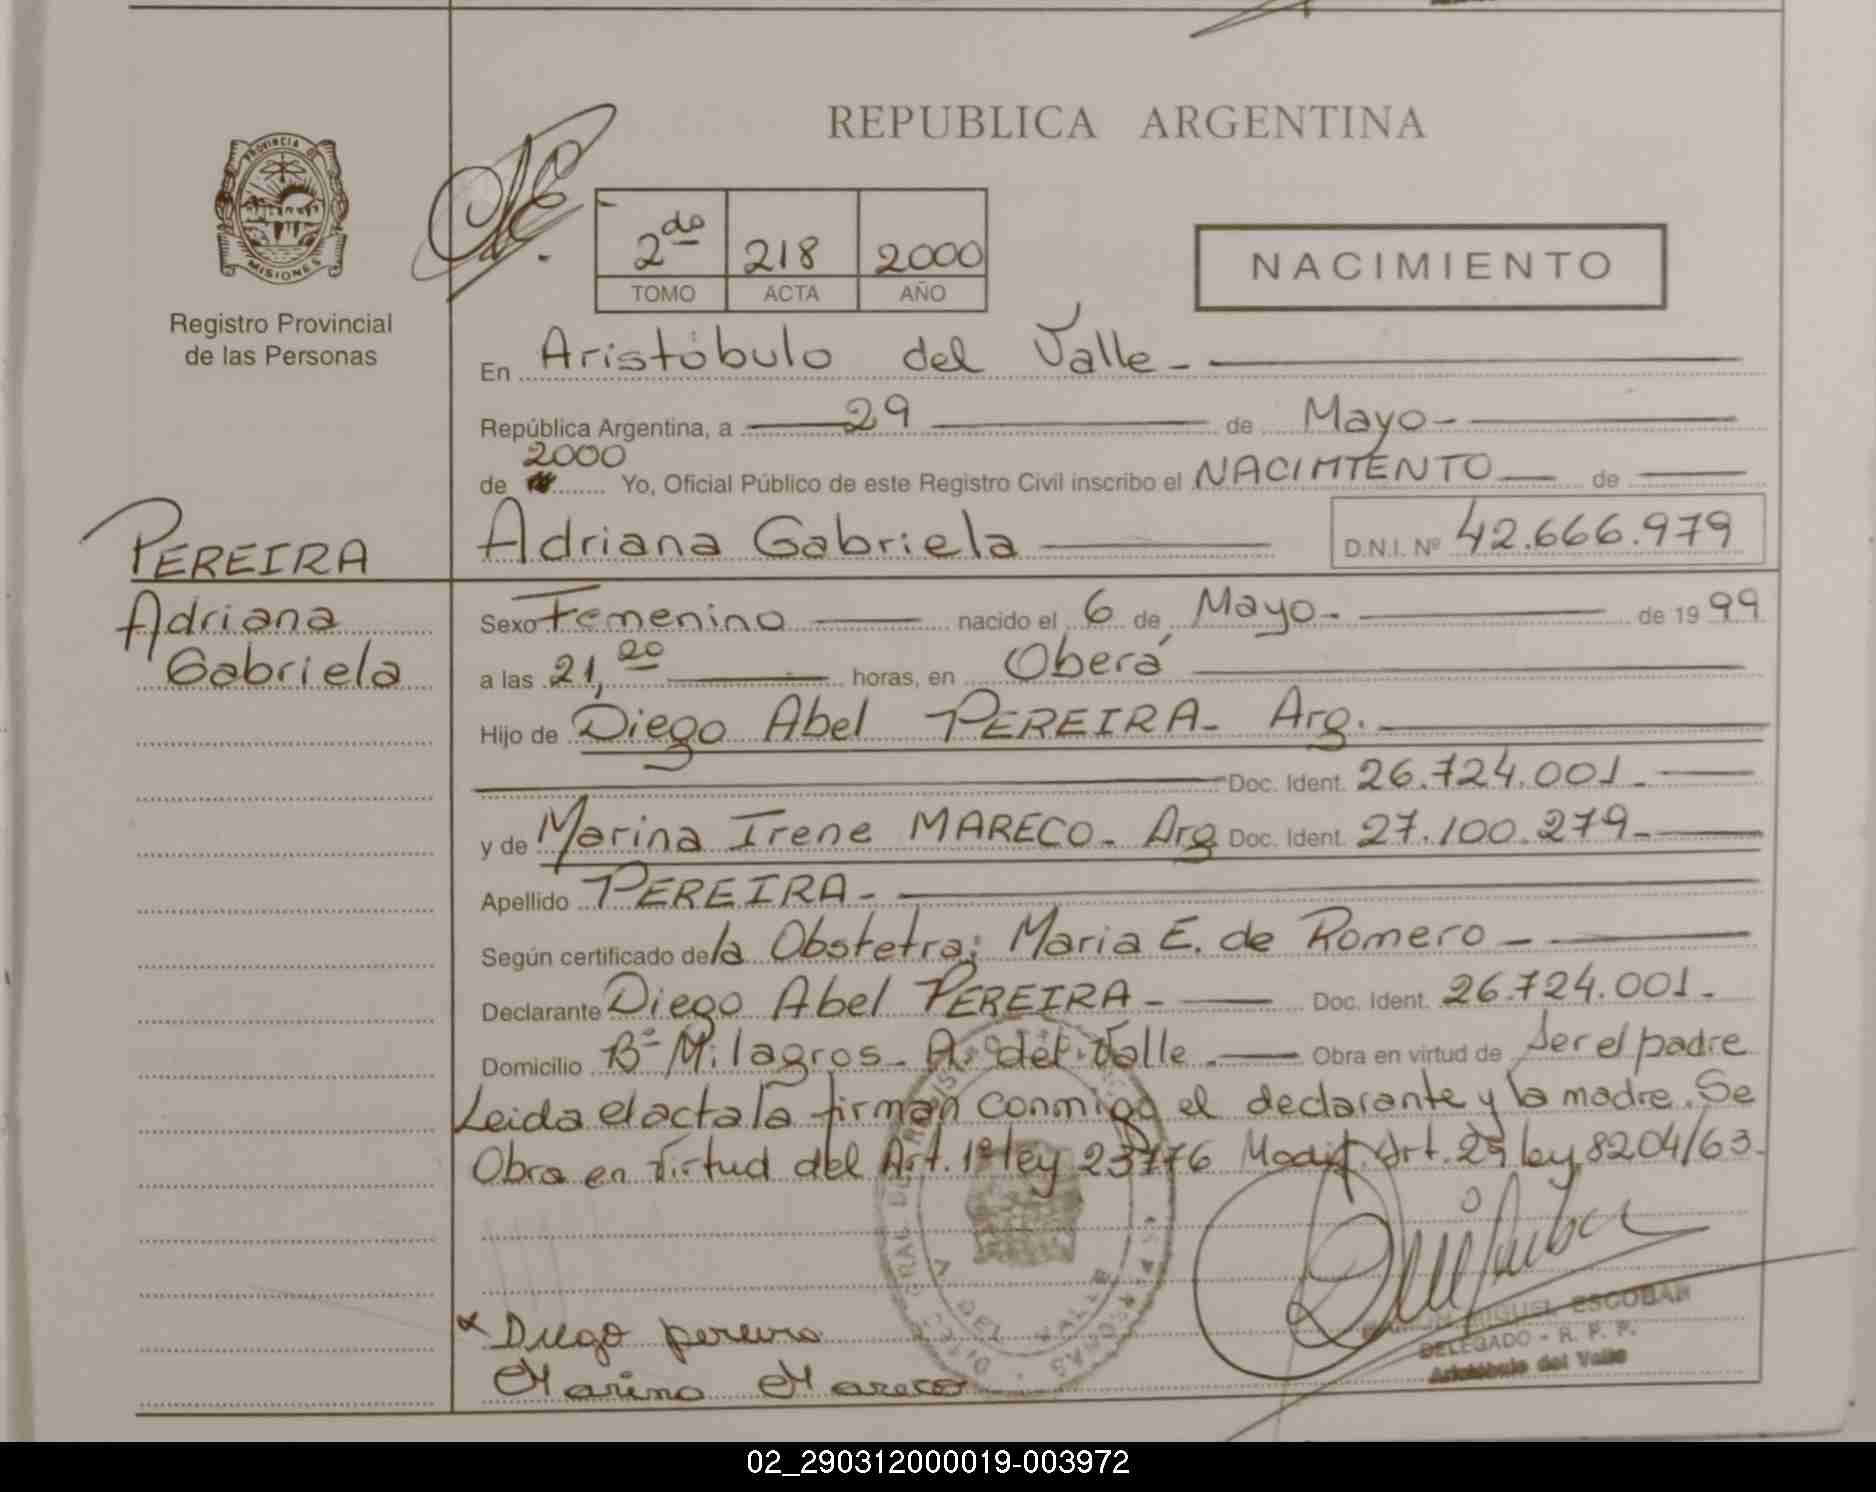 REPUBLICA ARGENTINA
PROVINCIA DE
MISIONES
Registro Provincial
de las Personas
2do 218 2000
TOMO ACTA AÑO
NACIMIENTO
En Aristóbulo del Valle -
República Argentina, a 29 de Mayo -
de 2000 Yo, Oficial Público de este Registro Civil inscribo el NACIMIENTO de
PEREIRA
Adriana Gabriela
Adriana Gabriela D.N.I. Nº 42.666.979
Sexo Femenino nacido el 6 de Mayo - de 1999
a las 21,20 horas, en Oberá
Hijo de Diego Abel PEREIRA - Arg.
Doc. Ident. 26.724.001 -
y de Marina Irene MARECO - Arg Doc. Ident. 27.100.279 -
Apellido PEREIRA -
Según certificado de la Obstetra; Maria E. de Romero -
Declarante Diego Abel PEREIRA - Doc. Ident. 26.724.001.
Domicilio Bº Milagros - A. del Valle - Obra en virtud de ser el padre
Leida el acta la firman conmigo el declarante y la madre. Se
Obra en virtud del Art. 1º ley 23776 Modif. Art. 29 ley 8204/63 -
x Diego pereira
Marina Mareco
MIGUEL ESCOBAR
DELEGADO - R. P. P.
Aristóbulo del Valle
DEL VALLE
02_290312000019-003972